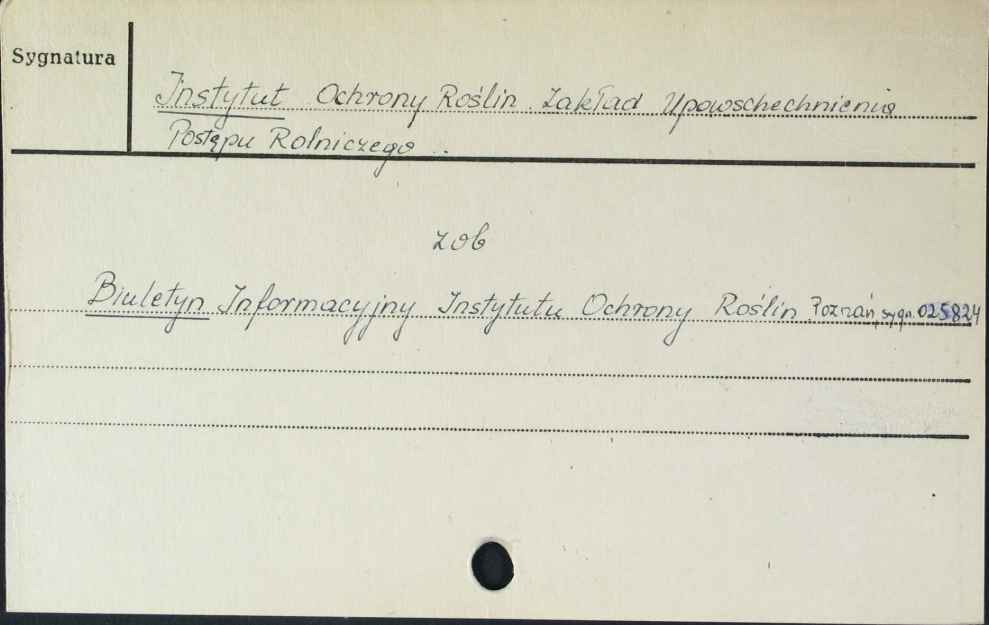 Sygnatura
Instytut Ochrony Roślin. Zakład Upowszechnienia
Postępu Rolniczego..
zob
Biuletyn Informacyjny Instytutu Ochrony Roślin Poznań, sygn. 025824